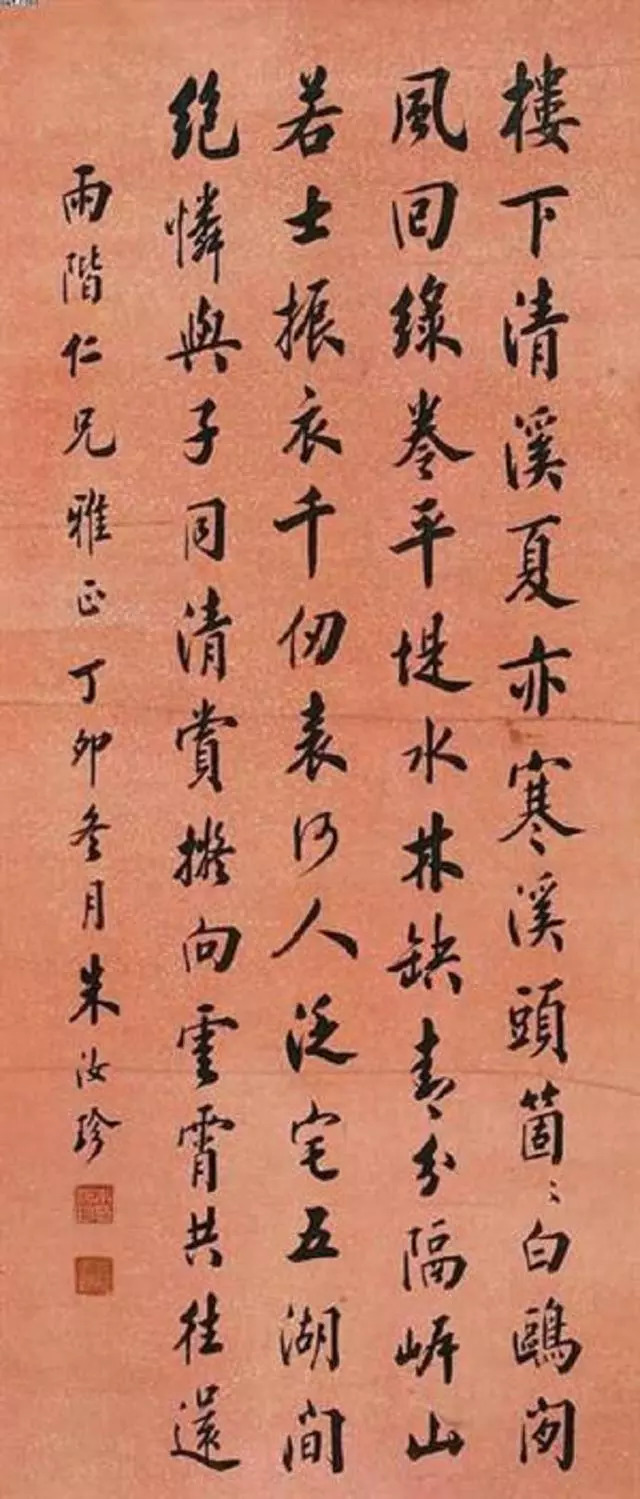 樓下清溪夏亦寒溪頭箇〻白鷗閑
風回綠卷平堤水林缺青分隔岸山
若士振衣千仞表何人泛宅五湖間
絶憐與子同清賞擬向雲霄共往還
兩階仁兄雅正丁卯冬月朱汝珍